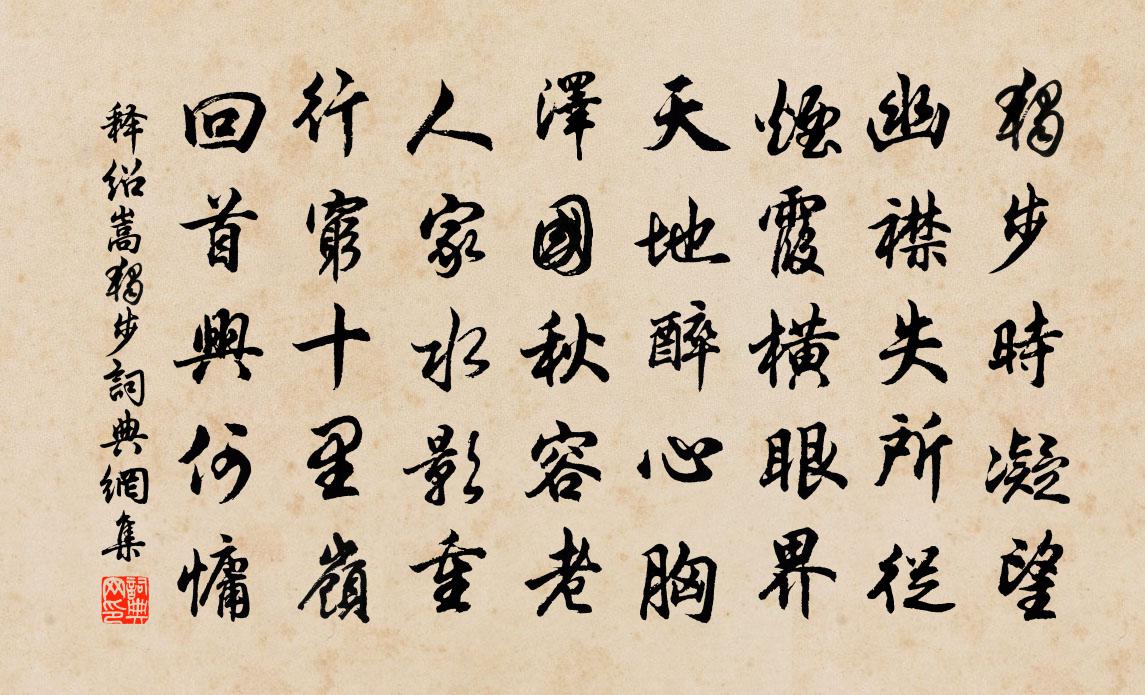 獨步時凝望
幽襟失所從
煙霞橫眼界
天地醉心胸
澤國秋容老
人家水影重
行窮十里嶺
回首興何慵
释紹嵩獨步詞典網集
詞典网印